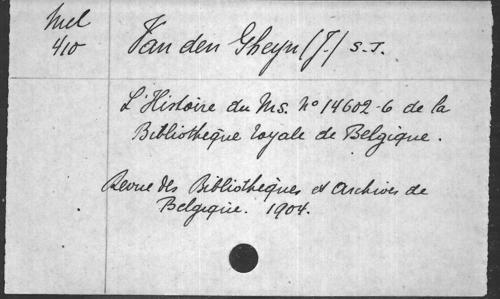 Mel
410
Van den Gheyn (J.) S.J.
L'Histoire du Ms. No 14602-6 de la
Bibliothèque royale de Belgique.
Revue des Bibliothèques et Archives de
Belgique. 1904.